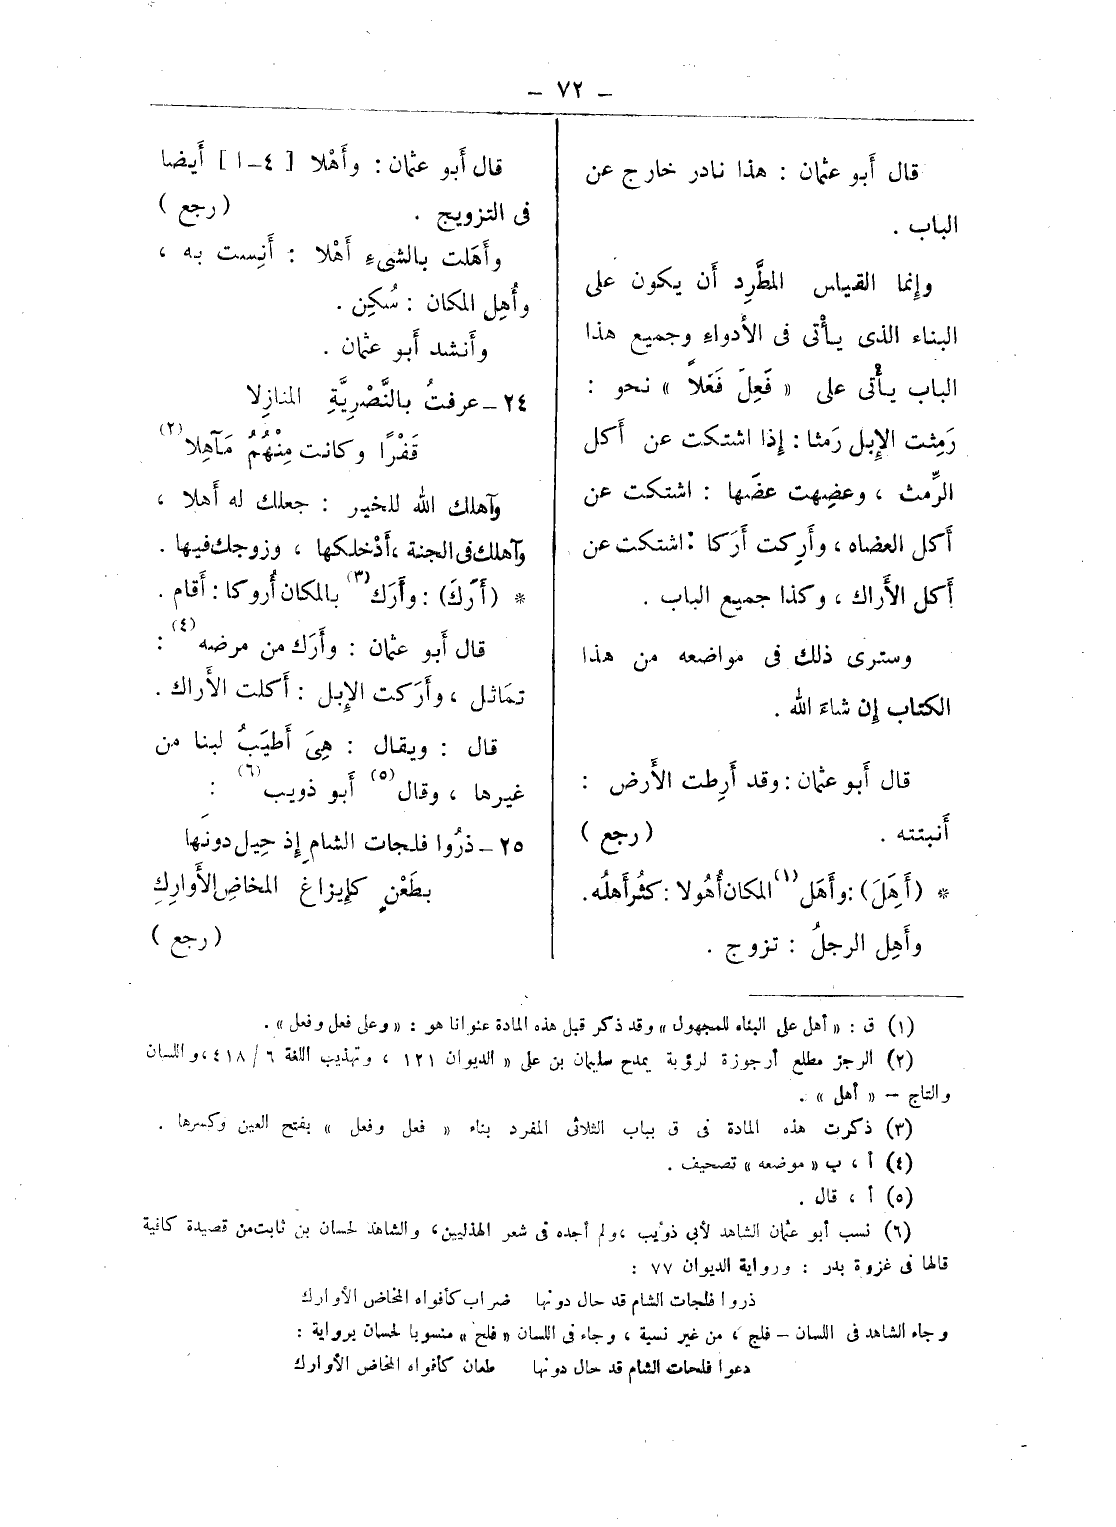 – ٧٢ –
قال أَبو عثمان : هذا نادر خارج عن
الباب .
وإنما القياس المطَّرِد أَن يكون على
البناء الذى يأْتى فى الأَدواءِ وجميع هذا
الباب يأْتى على « فَعِلَ فَعَلاً » نحو :
رَمِثت الإِبل رَمثا : إذا اشتكت عن أَكل
الرِّمث ، وعضِهت عضَها : اشتكت عن
أَكل العضاه ، وأَرِكت أَرَكا : اشتكت عن
أَكل الأَراك ، وكذا جميع الباب .
وسترى ذلك فى مواضعه من هذا
الكتاب إِن شاءَ الله .
قال أَبو عثمان : وقد أَرِطت الأَرض :
أَنبتته . ( رجع )
* (أَهِلَ) : وأَهَل(١) المكان أُهُولا : كثُر أَهلُه .
وأَهِل الرجلُ : تزوج .
قال أَبو عثمان : وأَهْلا [ ٤–ا ] أَيضا
فى التزويج . ( رجع )
وأَهَلت بالشىءِ أَهْلا : أَنِست به ،
وأُهِل المكان : سُكِن .
وأَنشد أَبو عثمان .
٢٤ – عرفتُ بالنَّصْرِيَّةِ المنازِلا
قَفْرًا وكانت مِنْهُمُ مَآهِلا(٢)
وآهلك الله للخير : جعلك له أَهلا ،
وآهلك فى الجنة ، أَدْخلكها ، وزوجك فيها .
* (أَرَكَ) : وأَرَك(٣) بالمكان أُروكا : أَقام .
قال أَبو عثمان : وأَرَك من مرضه(٤) :
تماثل ، وأَرَكت الإِبل : أَكلت الأَراك .
قال : ويقال : هِىَ أَطيَبُ لبنا من
غيرها ، وقال(٥) أَبو ذويب(٦) :
٢٥ – ذرُوا فلجات الشام إِذ حِيل دونها
بطَعْنٍ كإِيزاغ المخاضِ الأَوارِكِ
( رجع )
(١) ق : « أهل على البناء للمجهول » وقد ذكر قبل هذه المادة عنوانا هو : « وعلى فعل وفعل » .
(٢) الرجز مطلع أرجوزة لرؤبة يمدح سليمان بن على « الديوان ١٢١ ، وتهذيب اللغة ٦ / ٤١٨ ، واللسان
والتاج – « أهل » .
(٣) ذكرت هذه المادة فى ق بباب الثلاثى المفرد بناء « فعل وفعل » بفتح العين وكسرها .
(٤) أ ، ب « موضعه » تصحيف .
(٥) أ ، قال .
(٦) نسب أبو عثمان الشاهد لأبى ذؤيب ، ولم أجده فى شعر الهذليين ، والشاهد لحسان بن ثابت من قصيدة كافية
قالها فى غزوة بدر : ورواية الديوان ٧٧ :
ذروا فلجات الشام قد حال دونها ضراب كأفواه المخاض الأوارك
وجاء الشاهد فى اللسان – فلج ، من غير نسبة ، وجاء فى اللسان « فلح » منسوبا لحسان برواية :
دعوا فلحات الشام قد حال دونها طعان كأفواه المخاض الأوارك